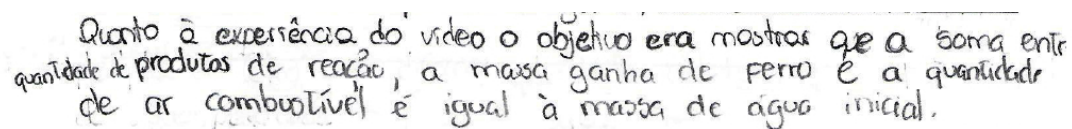 Quanto à experiência do video o objetivo era mostrar que a soma entr
quantidade de produtos de reacão, a massa ganha de ferro e a quantidade
de ar combustível é igual à massa de água inicial.